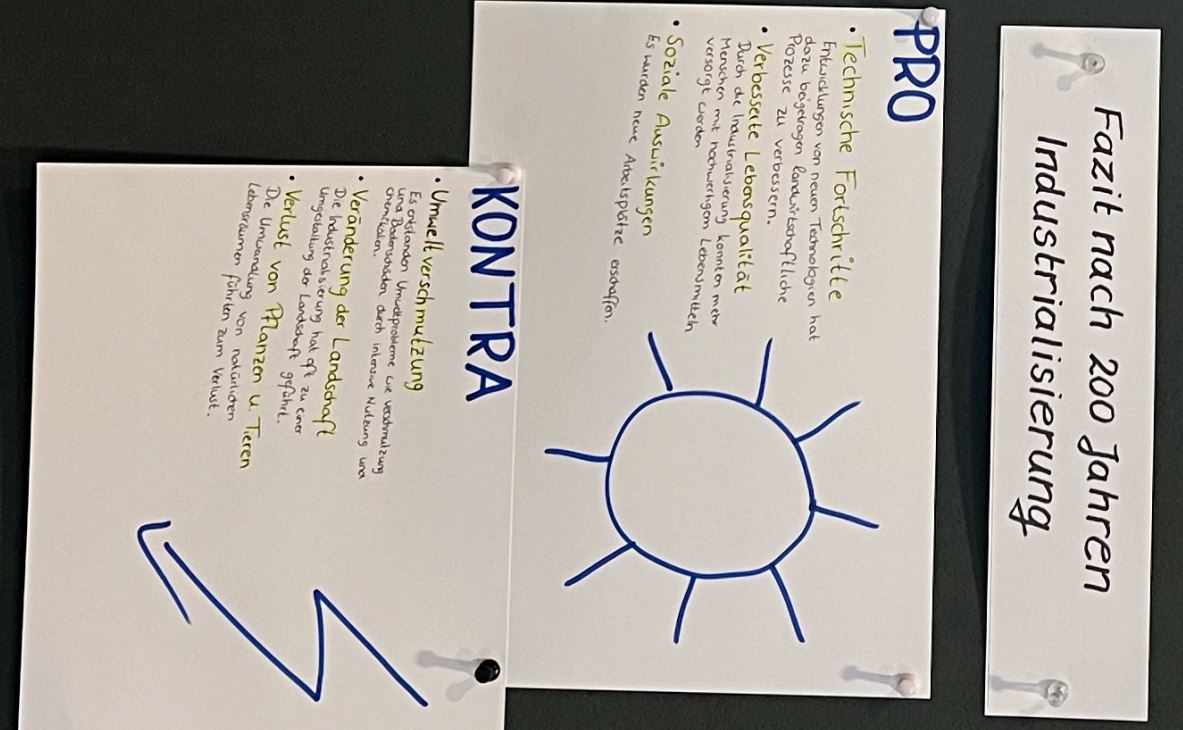 Fazit nach 200 Jahren
Industrialisierung
PRO
• Technische Fortschritte
Entwicklungen von neuen Technologien hat
dazu beigetragen landwirtschaftliche
Prozesse zu verbessern.
• Verbesserte Lebensqualität
Durch die Industrialisierung konnten mehr
Menschen mit hochwertigem Lebensmitteln
versorgt werden
• Soziale Auswirkungen
Es wurden neue Arbeitsplätze erschaffen.
KONTRA
• Umweltverschmutzung
Es entstanden Umweltprobleme wie verschmutzung
und Bodenschäden durch intensive Nutzung und
chemikalien.
• Veränderung der Landschaft
Die Industrialisierung hat oft zu einer
umgestaltung der Landschaft geführt.
• Verlust von Pflanzen u. Tieren
Die Umwandlung von natürlichen
Lebensräumen führten zum Verlust.